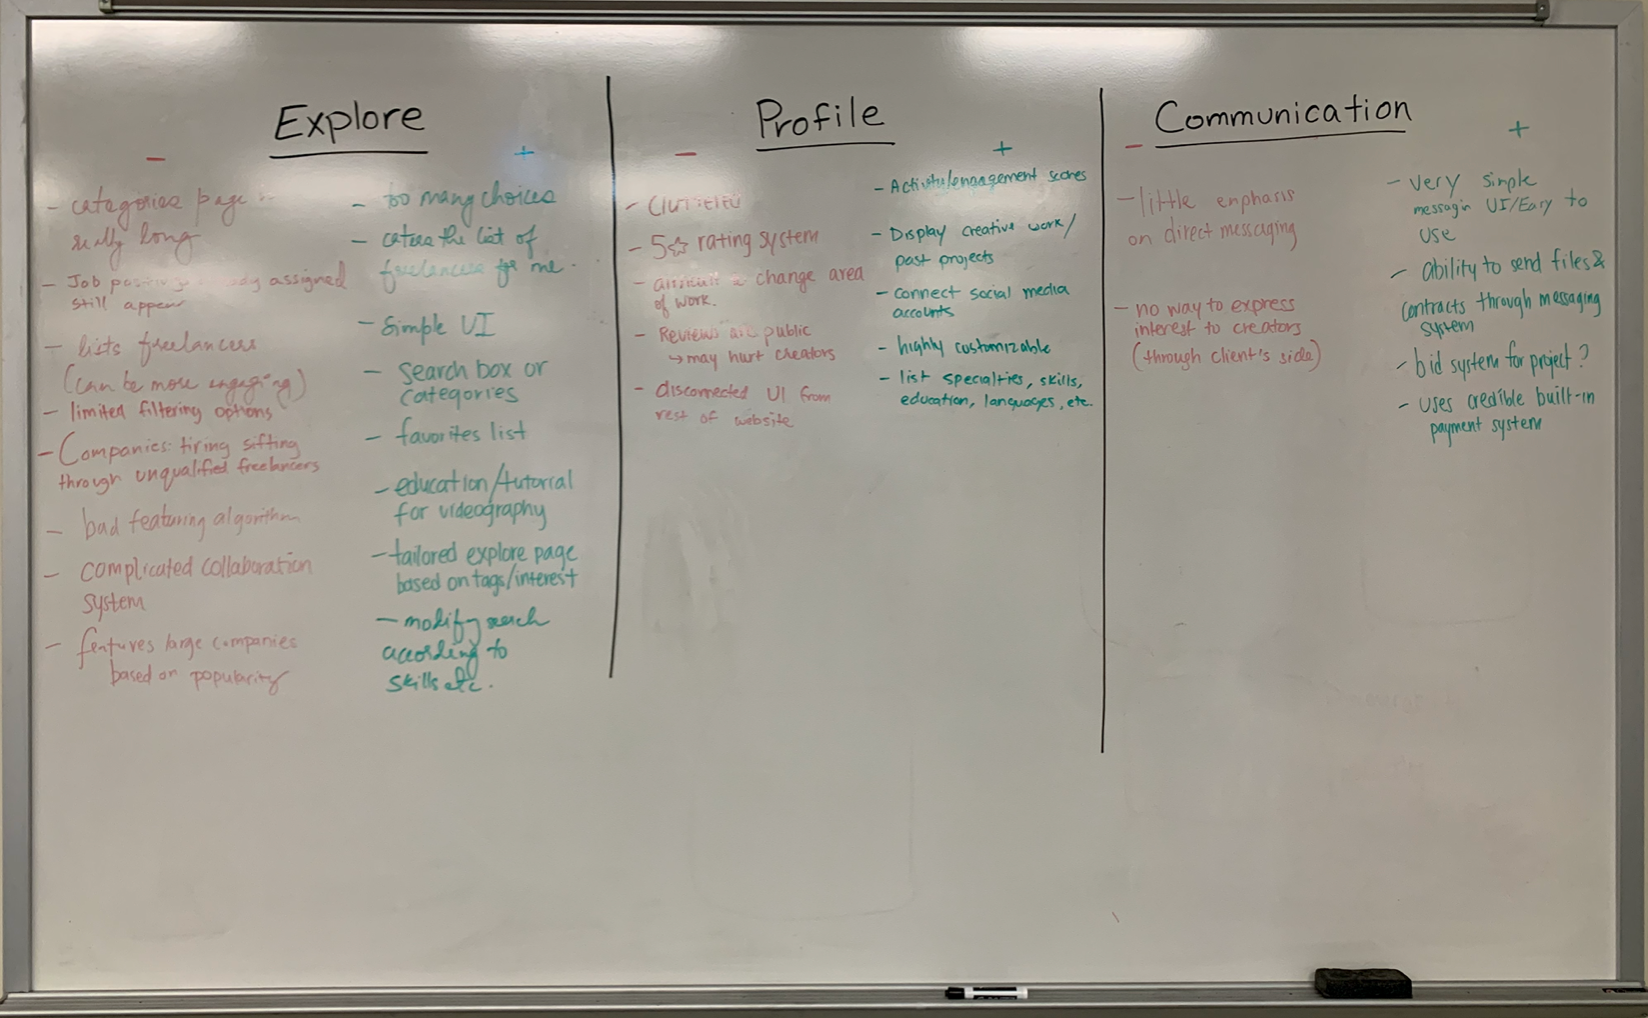 Explore
-
- categories page
really long
- Job already assigned
still appear
- lists freelancers
(can be more engaging)
- limited filtering options
- Companies: tiring sifting
through unqualified freelancers
- bad featuring algorithm
- complicated collaboration
system
- features large companies
based on popularity
+
- too many choices
- the list of
freelancers for me.
- Simple UI
- search box or
categories
- favorites list
- education/tutorial
for videography
- tailored explore page
based on tags/interest
- modify search
according to
skills etc.
Profile
-
-
- 5☆ rating system
- difficult to change area
of work.
- Reviews are public
→ may hurt creators
- disconnected UI from
rest of website
+
- Activity/engagement scores
- Display creative work/
past projects
- connect social media
accounts
- highly customizable
- list specialties, skills,
education, languages, etc.
Communication
-
- little enphasis
on direct messaging
- no way to express
interest to creators
(through client's side)
+
- very simple
messagin UI/Easy to
use
- ability to send files &
contracts through messaging
system
- bid system for project?
- uses credible built-in
payment system